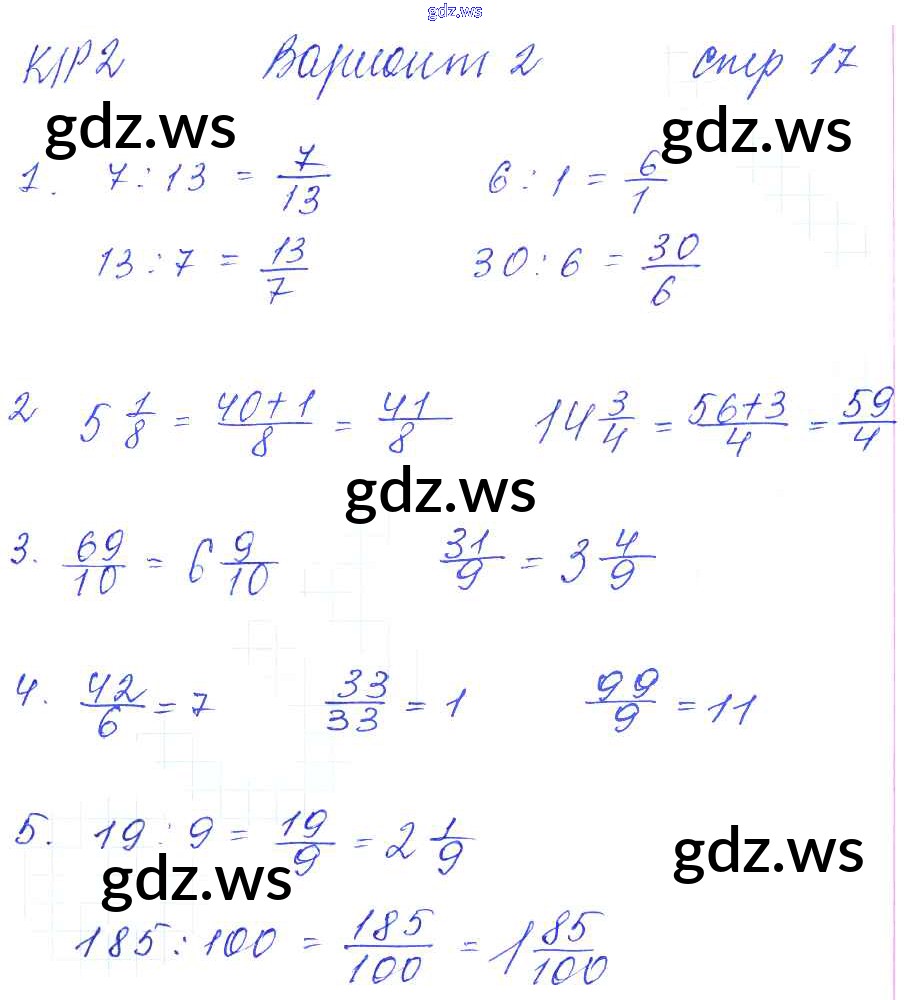 gdz.ws
К/Р 2 Вариант 2 стр 17
gdz.ws gdz.ws
1. 7 : 13 = 7/13 6 : 1 = 6/1
13 : 7 = 13/7 30 : 6 = 30/6
2 5 1/8 = 40+1/8 = 41/8 14 3/4 = 56+3/4 = 59/4
gdz.ws
3. 69/10 = 6 9/10 31/9 = 3 4/9
4. 42/6 = 7 33/33 = 1 99/9 = 11
5. 19 : 9 = 19/9 = 2 1/9
gdz.ws gdz.ws
185 : 100 = 185/100 = 1 85/100